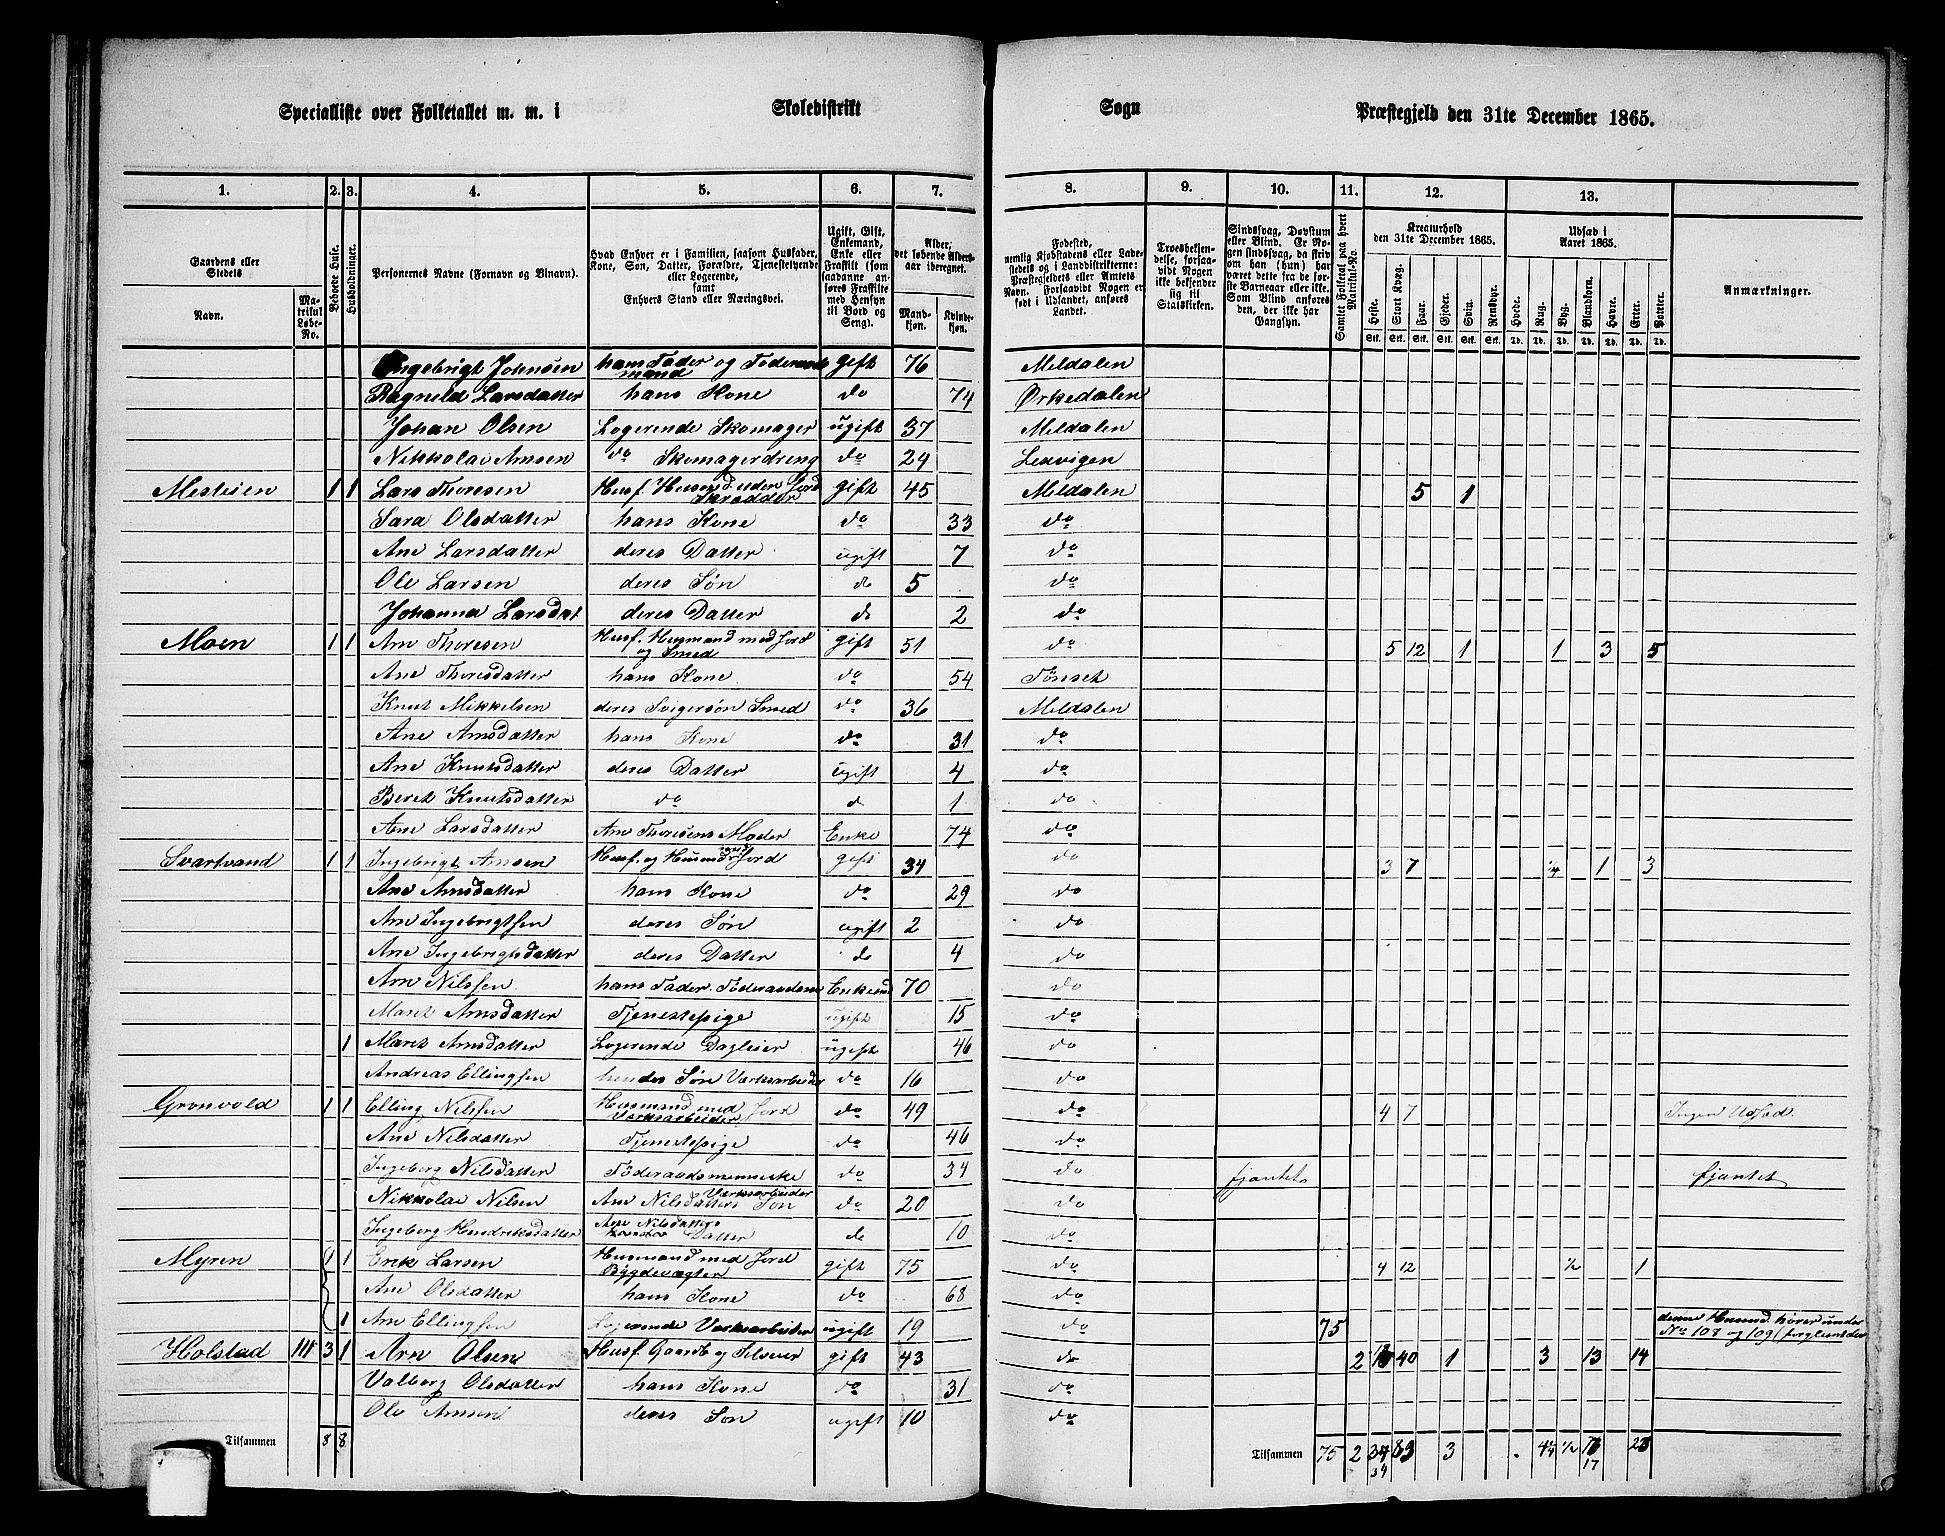 Specialliste over Folketallet m. m. i Skoledistrikt Sogn Præstegjeld den 31te December 1865.
1. 2. 3. 4. 5. 6. 7. 8. 9. 10. 11. 12. 13.
Gaardens eller Stedets
Navn.
Matrikul Løbe-No.
Beboede Huse.
Husholdninger.
Personernes Navne (Fornavn og Binavn).
Hvad Enhver er i Familien, saasom Husfader, Kone, Søn, Datter, Forældre, Tjenestetyende eller Logerende, samt Enhvers Stand eller Næringsvei.
Ugift, Gift, Enkemand, Enke eller Fraskilt (som saadanne anføres Fraskilte med Hensyn til Bord og Seng).
Alder, det løbende Aldersaar iberegnet.
Mandkjøn. Kvindekjøn.
Fødested, nemlig Kjøbstadens eller Ladestedets og i Landdistrikterne: Præstegjeldets eller Amtets Navn. Forsaavidt Nogen er født i Udlandet, anføres Landet.
Troesbekjendelse, forsaavidt Nogen ikke bekjender sig til Statskirken.
Sindssvag, Døvstum eller Blind. Er Nogen sindssvag, da skriv om han (hun) har været dette fra de første Barneaar eller ikke. Som Blind anføres den, der ikke har Gangsyn.
Samlet Folketal paa hvert Matrikul-No.
Kreaturhold den 31te December 1865.
Heste. Stort Kvæg. Faar. Gjeder. Svin. Rensdyr.
Udsæd i Aaret 1865.
Hvede. Rug. Byg. Blandkorn. Havre. Erter. Poteter.
Anmærkninger.
Ingebrigt Johnsen hans Fader og Føderaadsmand gift 76 Meldalen
Ragnild Larsdatter hans Kone do 74 Ørkedalen
Johan Olsen Logerende Skomager ugift 37 Meldalen
Nikkolai Arnsen do Skomagerdreng do 24 Lexvigen
Meslien 1 1 Lars Thoresen Husf. Husmd. uden Jord Skrædder gift 45 Meldalen 5 1
Sara Olsdatter hans Kone do 33 do
Ane Larsdatter deres Datter ugift 7 do
Ole Larsen deres Søn do 5 do
Johanna Larsdat deres Datter do 2 do
Moen 1 1 Arn Thoresen Husf. Husmand med Jord og Smed gift 51 do 5 12 1 1 3 5
Ane Thoresdatter hans Kone do 54 Tønset
Knut Mikkelsen deres Svigersøn Smed do 36 Meldalen
Ane Arnsdatter hans Kone do 31 do
Ane Knutsdatter deres Datter ugift 4 do
Beret Knutsdatter do do 1 do
Ane Larsdatter Arn Thoresens Moder Enke 74 do
Svartvand 1 1 Ingebrigt Arnsen Husf. og Husmd. med Jord gift 34 do 3 7 1/4 1 3
Ane Arnsdatter hans Kone do 29 do
Arn Ingebrigtsen deres Søn ugift 2 do
Ane Ingebrigtsdatter deres Datter do 4 do
Arn Nilssen hans Fader. Føderaadsm Enkemd 70 do
Maret Arnsdatter Tjenestepige ugift 15 do
1 Maret Arnsdatter Logerende Dagleier ugift 46 do
Andreas Ellingsen hendes Søn Værksarbeider do 16 do
Gronvold 1 1 Elling Nilssen Husmand med Jord Værksarbeider do 49 do 4 7 Ingen Udsæd
Ane Nilsdatter Tjenestepige do 46 do
Ingeborg Nilsdatter Føderaadsmenneske do 34 do fjantet fjantet
Nikkolai Nilsen Ane Nilsdatters Søn Værksarbeider do 20 do
Ingeborg Hendriksdatter Ane Nilsdatters Datter do 10 do
Myren 1 1 Erik Larsen Husmand med Jord Bygdevægter gift 75 do 4 12 1/2 1
Ane Olsdatter hans Kone do 68 do
1 Arn Ellingsen Logerende Værksarbeider ugift 19 do 75 denne Husmd. hører under No 108 og 109
Holstad 111 3 1 Arn Olsen Husf. Gaardb og Selveier gift 43 do 2 18 40 1 3 13 14
Valborg Olsdatter hans Kone do 31 do
Ole Arnsen deres Søn ugift 10 do
Tilsammen 8 8 Tilsammen 75 2 34 83 3 4 1/4 1/2 17 23
34 17